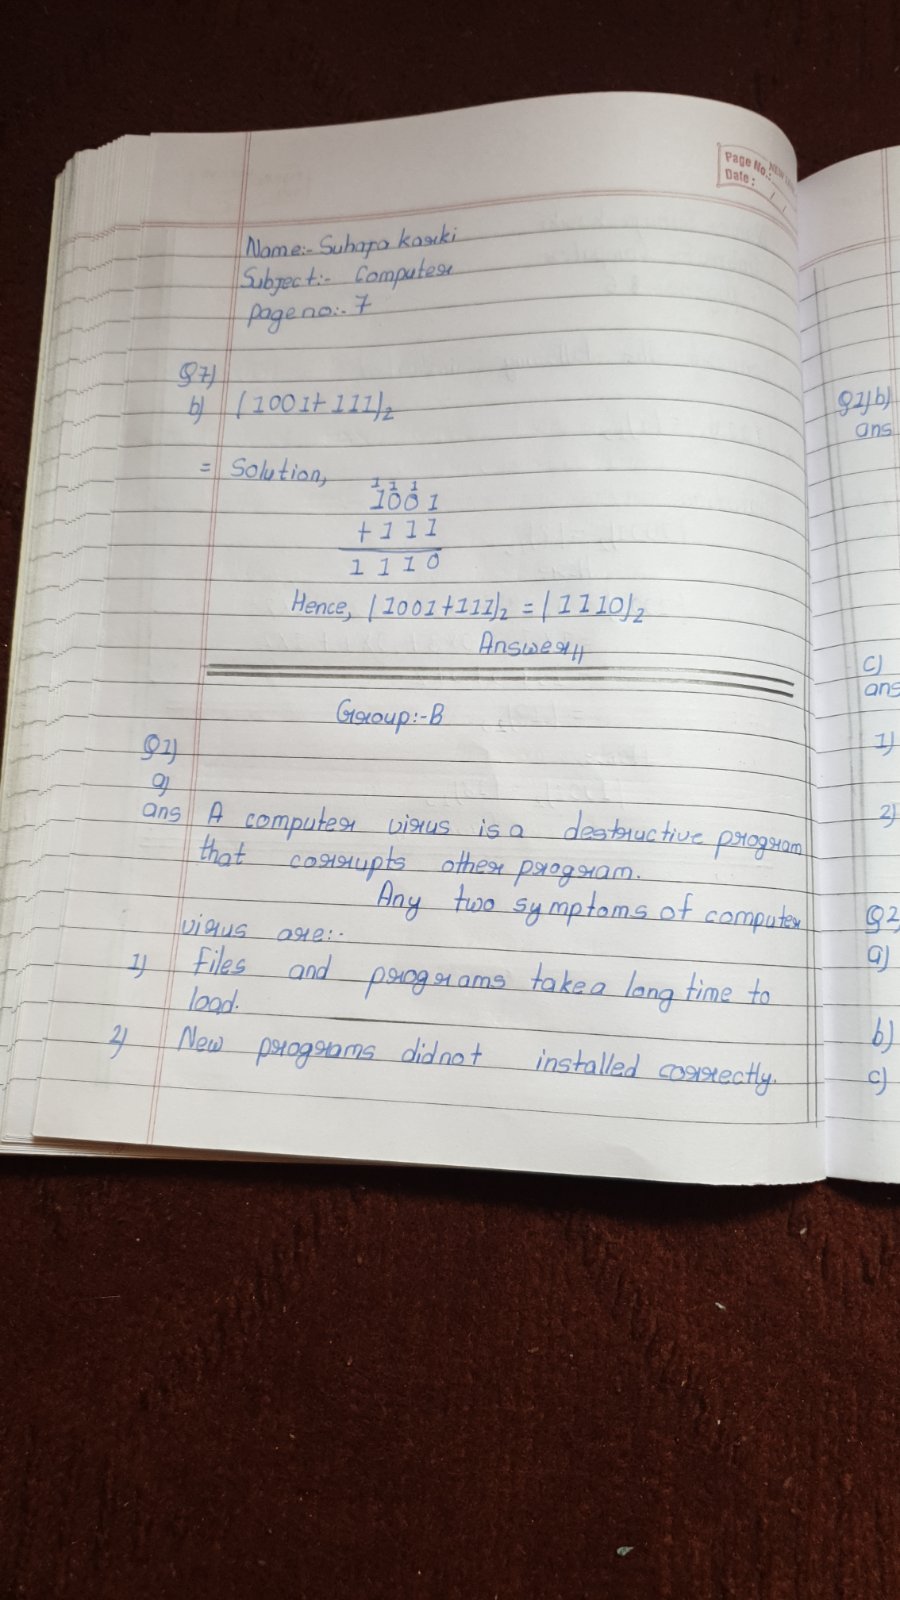 Page No.:
Date: / /
Name:- Suhapa karki
Subject:- Computer
Page no:- 7
Q7)
b) (1001+111)₂
= Solution,
1 1 1
1001
+ 111
1 1 1 0
Hence, (1001+111)₂ = (1110)₂
Answer//
Group:-B
Q1)
a)
ans A computer virus is a destructive program
that corrupts other program.
Any two symptoms of computer
virus are:-
1) Files and programs take a long time to
load.
2) New programs did not installed correctly.
Q1)b)
ans
c)
ans
1)
2)
Q2
a)
b)
c)